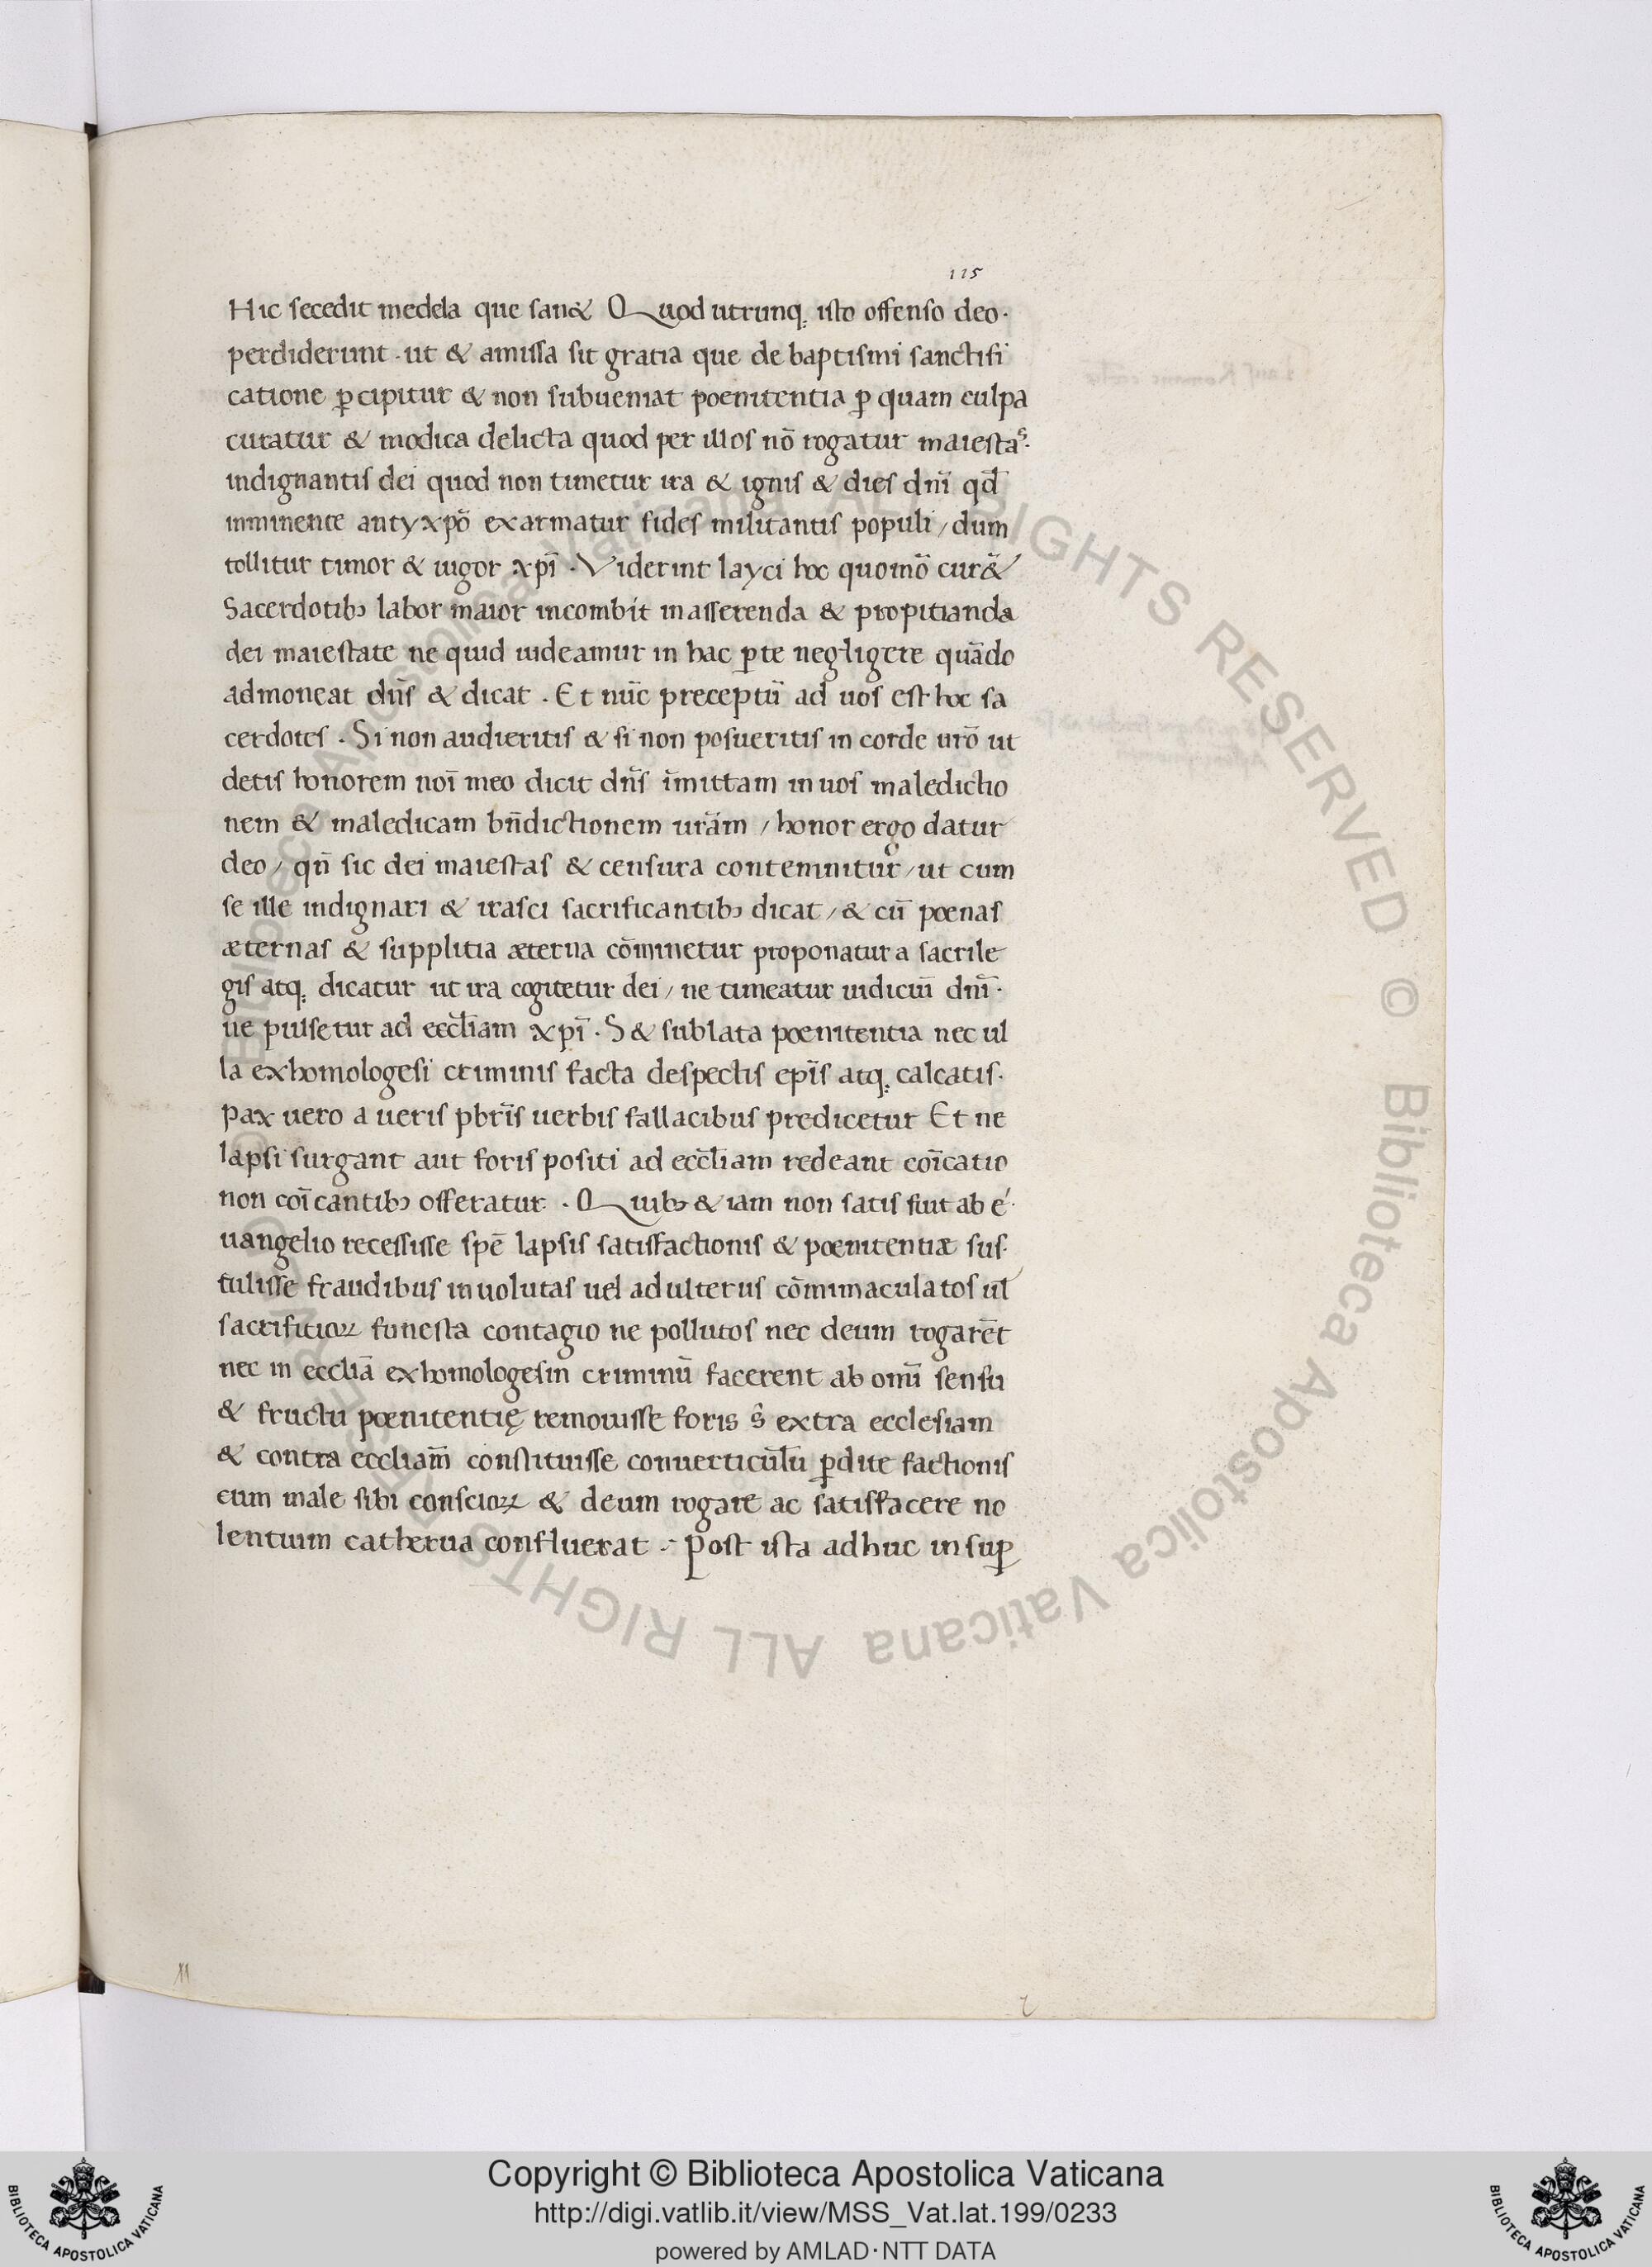 115
Hic secedit medela que san& Quod utrunq; isto offenso deo·
perdiderunt · ut & amissa sit gratia que de baptismi sanctifi
catione ꝑcipitur & non subueniat poenitentia ꝑ quam culpa
curatur & modica delicta quod per illos nō rogatur maiestas·
indignantis dei quod non timetur ira & ignis & dies dnī qđ
imminente antyxpō exarmatur fides militantis populi / dum
tollitur timor & uigor xpī · Viderint layci hoc quomō cur&
Sacerdotibꝫ labor maior incombit in asserenda & propitianda
dei maiestate ne quid uideamur in hac ꝑte negligere quādo
admoneat dn̄s & dicat · Et nūc preceptū ad uos est hoc sa
cerdotes · Si non audieritis & si non posueritis in corde urō ut
detis honorem noī meo dicit dn̄s īmittam in uos maledictio
nem & maledicam bn̄dictionem urām / honor ergo datur
deo / qn̄ sic dei maiestas & censura contemnitur / ut cum
se ille indignari & irasci sacrificantibꝫ dicat / & cū poenas
æternas & supplitia æterna cōminetur proponatur a sacrile
gis atq; dicatur ut ira cogitetur dei / ne timeatur iudiciū dnī·
ne pulsetur ad eccl̄iam xpī · S& sublata poenitentia nec ul
la exhomologesi criminis facta despectis ep̄is atq; calcatis·
Pax uero a ueris pbrīs uerbis fallacibus predicetur Et ne
lapsi surgant aut foris positi ad eccl̄iam redeant coīcatio
non coīcantibꝫ offeratur · Quibꝫ & iam non satis fuit ab e·
uangelio recessisse spē lapsis satisfactionis & poenitentiæ sus·
tulisse fraudibus inuolutas uel adulterus cōmimaculatos ul̄
sacrifitioꝝ funesta contagio ne pollutos nec deum rogarēt
nec in eccl̄iā exhomologesin criminū facerent ab omī sensu
& fructu poenitentię remouisse foris s̄ extra ecclesiam
& contra eccl̄iam constituisse conuerticulū ꝑdite factionis
cum male sibi conscioꝝ & deum rogare ac satisfacere no
lentium catherua confluerat · Post ista adhuc insuꝑ
Biblioteca Apostolica Vaticana ALL RIGHTS RESERVED ©
Copyright © Biblioteca Apostolica Vaticana
http://digi.vatlib.it/view/MSS_Vat.lat.199/0233
powered by AMLAD·NTT DATA
BIBLIOTECA APOSTOLICA VATICANA
BIBLIOTECA APOSTOLICA VATICANA